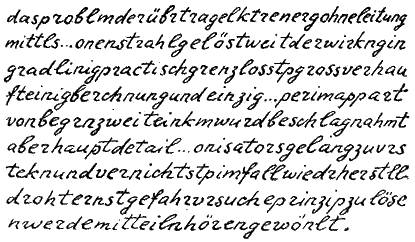 dasproblmderübrtragelktrenergohneleitung
mittls...onenstrahlgelöstweitderwirkngin
gradlinigpractischgrenzlosstpgrossverhau
fteinigberchnungundeinzig...perimappart
vonbegrnzweiteinkmwurdbeschlagnahmt
aberhauptdetail...onisatorsgelangzuvrs
teknundvernichtstpimfallwiedrherstll
drohternstgefahrvrsucheprinzipzulöse
nwerdemitteilnhörengewönlt.